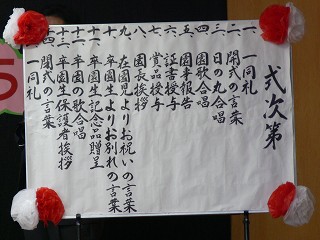 式次第
一、一同礼
二、開式の言葉
三、日の丸合唱
四、園歌合唱
五、園事報告
六、証書授与
七、賞品授与
八、園長挨拶
九、在園児よりお祝いの言葉
十、卒園生よりお別れの言葉
十一、卒園生記念品贈呈
十二、卒園の歌合唱
十三、卒園生保護者挨拶
十四、閉式の言葉
一同礼